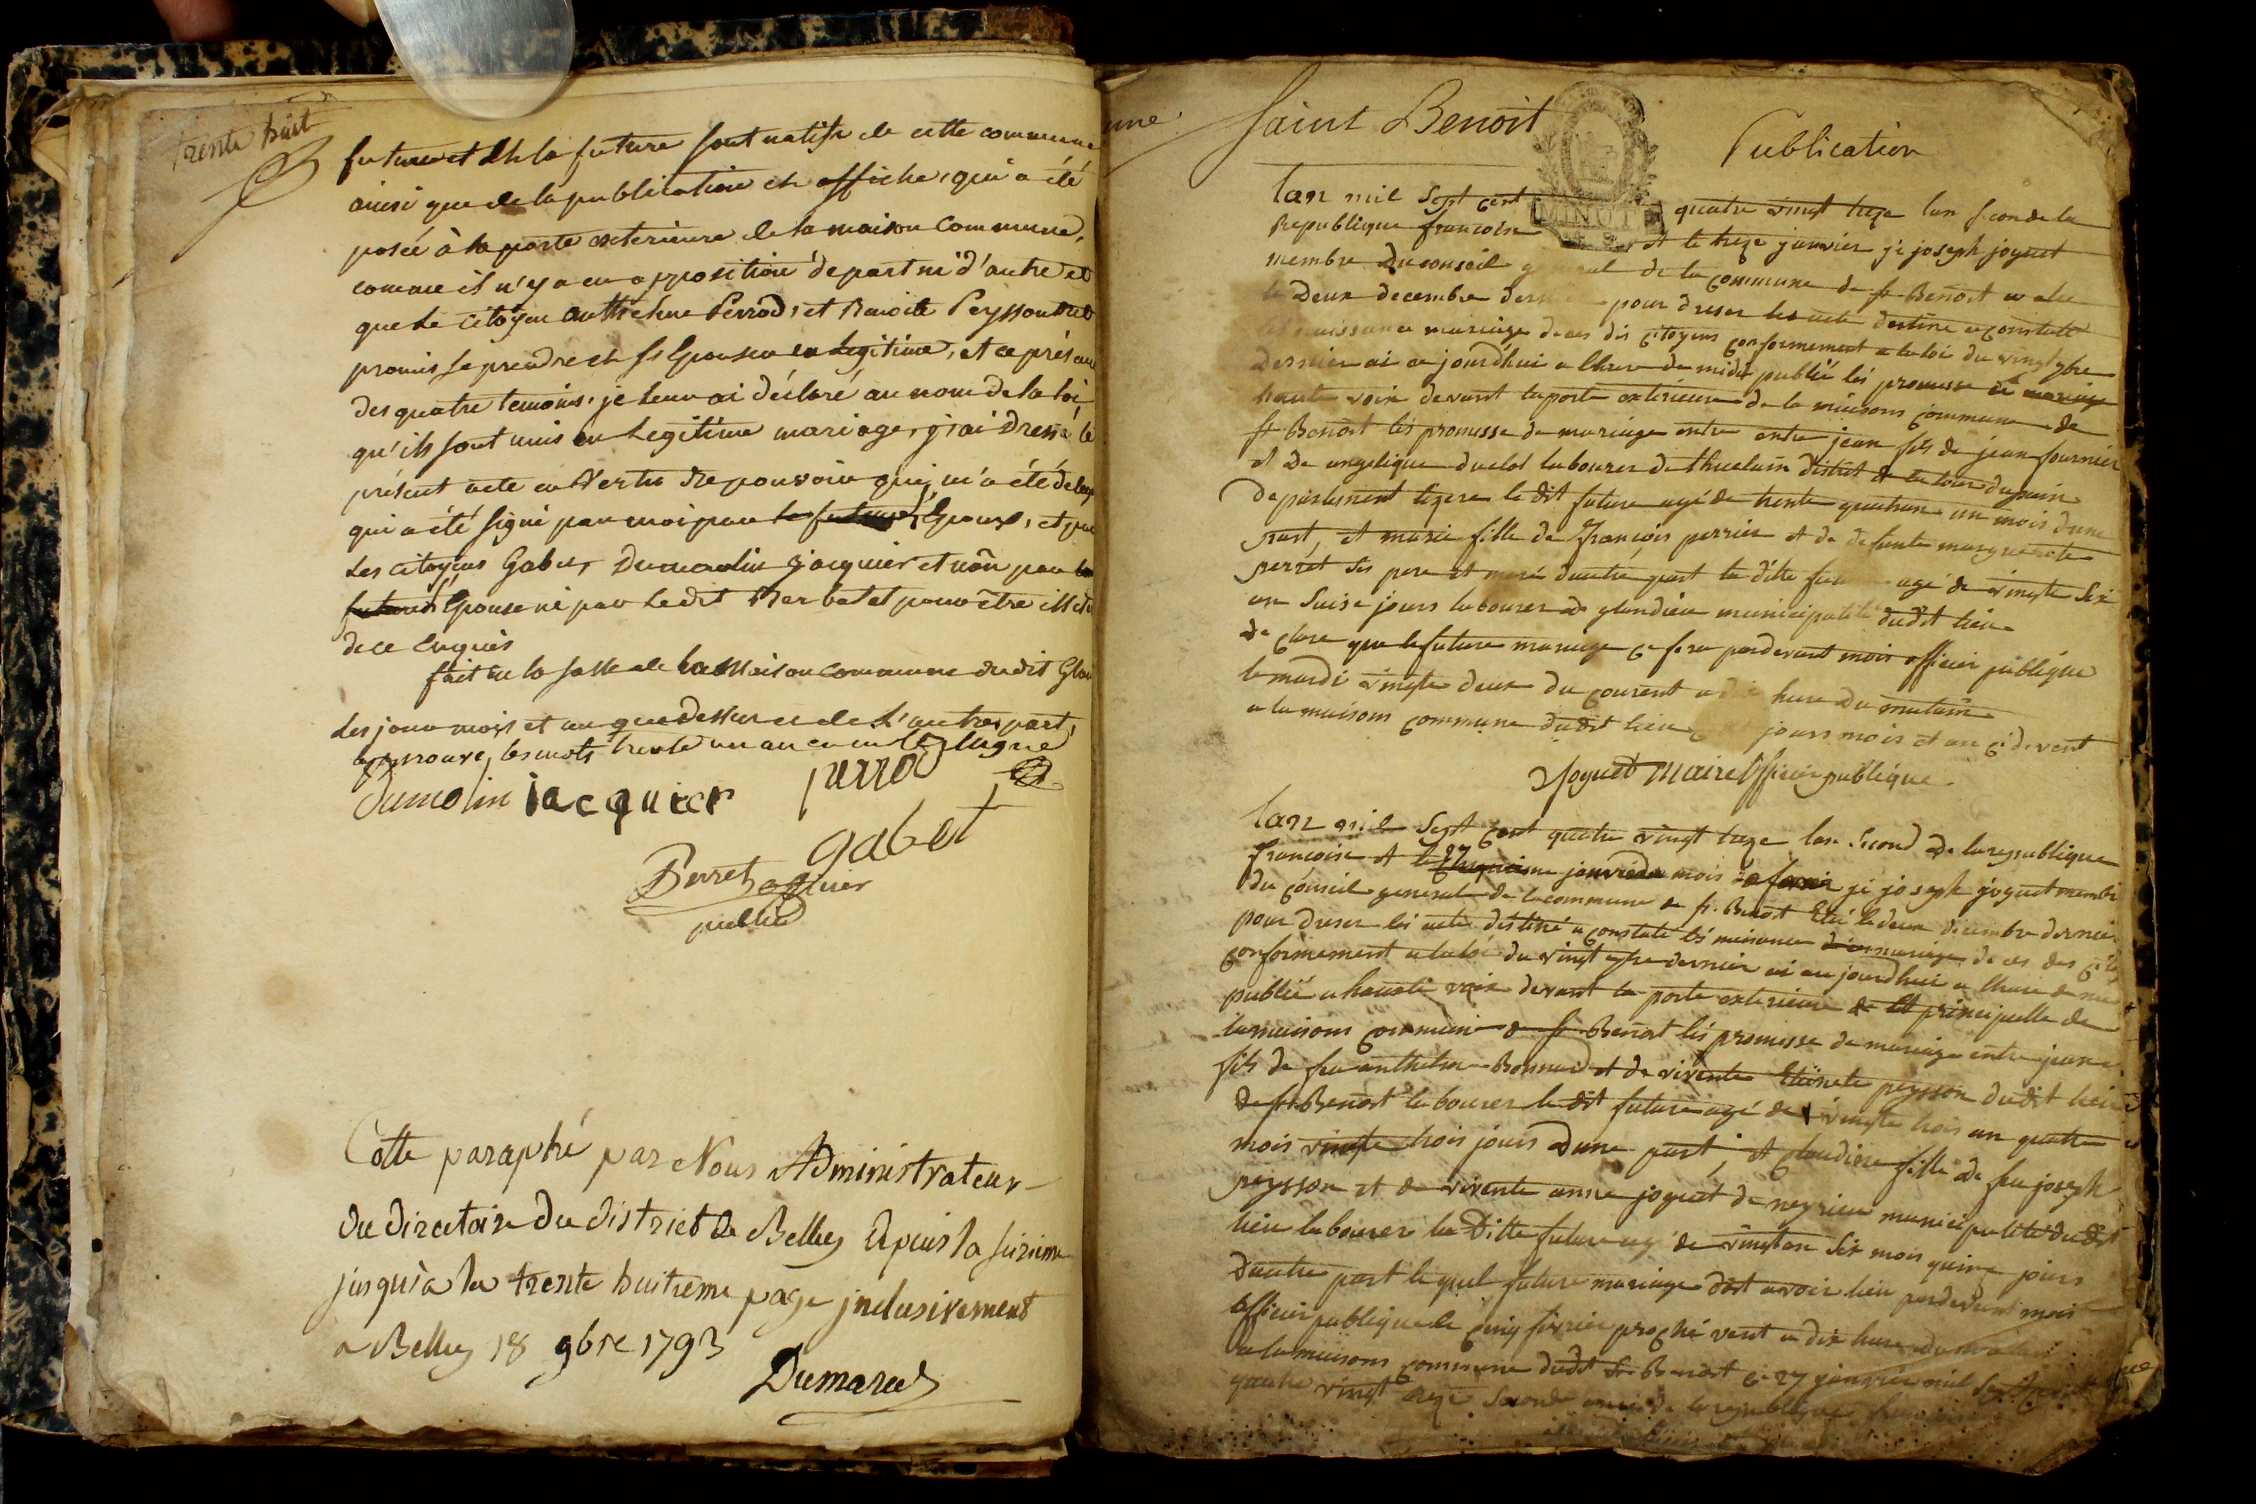 trente huit
future et de la future sont natifs de cette commune
ainsi que de la publication et affiche, qui a été
posée à la porte exterieure de la maison Commune,
comme il n'y a eu opposition de part ni d'autre et
que le citoyen Anthelme Perrod, et Benoite Peysson
promis se prendre et s'Epouser en legitime, et ce présence
des quatre temoins, je leur ai déclaré au nom de la loi
qu'ils sont unis en Legitime mariage, j'ai Dressé le
présent acte en Vertu de pouvoir qui m'a été
qui a été signé par moi par Epoux, et par
Les citoyens Gabet, Dumoulin Jacquier et non par la
Epouse ni par ledit Barbat pour être
de ce Enquis
fait en la salle de la Maison commune dudit
Les jour mois et an que dessus et de L'autre part,
approuvé les mots trente un an en ligne
Dumolin jacquier perrod
gabet
Perret officier
public
Cotte paraphé par Nous Administrateur
du directoire du district de Belley depuis la
jusqu'à la trente huitieme page inclusivement
a Belley 18 9bre 1793
Dumarest
Saint Benoit
Publication
MINUTE
lan mil Sept cent quatre vingt treze lan second de la
Republique francoise et le treze janvier je joseph joguet
membre du conseil general de la commune de st Benoit
le Deux decembre dernier pour dreser les acte destine a constate
les naissance mariage deces des citoyens conformement a la loi du vingt 7bre
dernier ai ce jourdhui a lhure de midi publié les promesse de mariage
haute voix devant la porte exterieure de la maisons commune de
st Benoit les promesse de mariage entre entre jean fils de jean fournier
et de angelique duclot laboureur de thuelin distrit de la tour dupain
departement lizere le dit future agé de trente quatre an un mois dune
part, et marie fille de François perrier et de defunte marguerite
perret ses pere et mere dautre part la dite future agé de vingte six
an jours labourer de glandieu municipalité dudit lieu
declare que le future mariage ce fera pardevant mois officier publique
le mardi vingte deux du courent a dix hure du matain
a la maisons commune dudit lieu jours mois et an ci devent
Joguet Maire Officier publique
lan mil Sept cent quatre vingt treze lan second de la republique
francoise et le 27 janvier je joseph joguet membre
du conseil general de la commune de st. Benoit le deux decembre dernier
pour dreser les acte destiné a constate les naissance mariage deces des
conformement a la loi du vingt 7bre dernier ai au jourdhui a lhure de
publié a haute voix devant la porte exterieure et principalle de
la maisons commune de st Benoit les promesse de mariage entre jean
fils de feu anthelme Bonnard et de vivente peysson dudit lieu
de st Benoit labourer le dit future agé de vingte trois an quatre
mois vingte trois jours dune part, et claudine fille de feu joseph
peysson et de vivente anne joguet de neyrieu municipalité dudit
lieu labourer la Ditte future agé de vingt an six mois quinze jours
dautre part le quel future mariage doit avoir lieu pardevant mois
officier publique le cinq fevrier proché vent a dix hure du matain
a la maisons commune dudit st Benoit ce 27 janvier mil sept cent
quatre vingt treze seconde anné de la republique